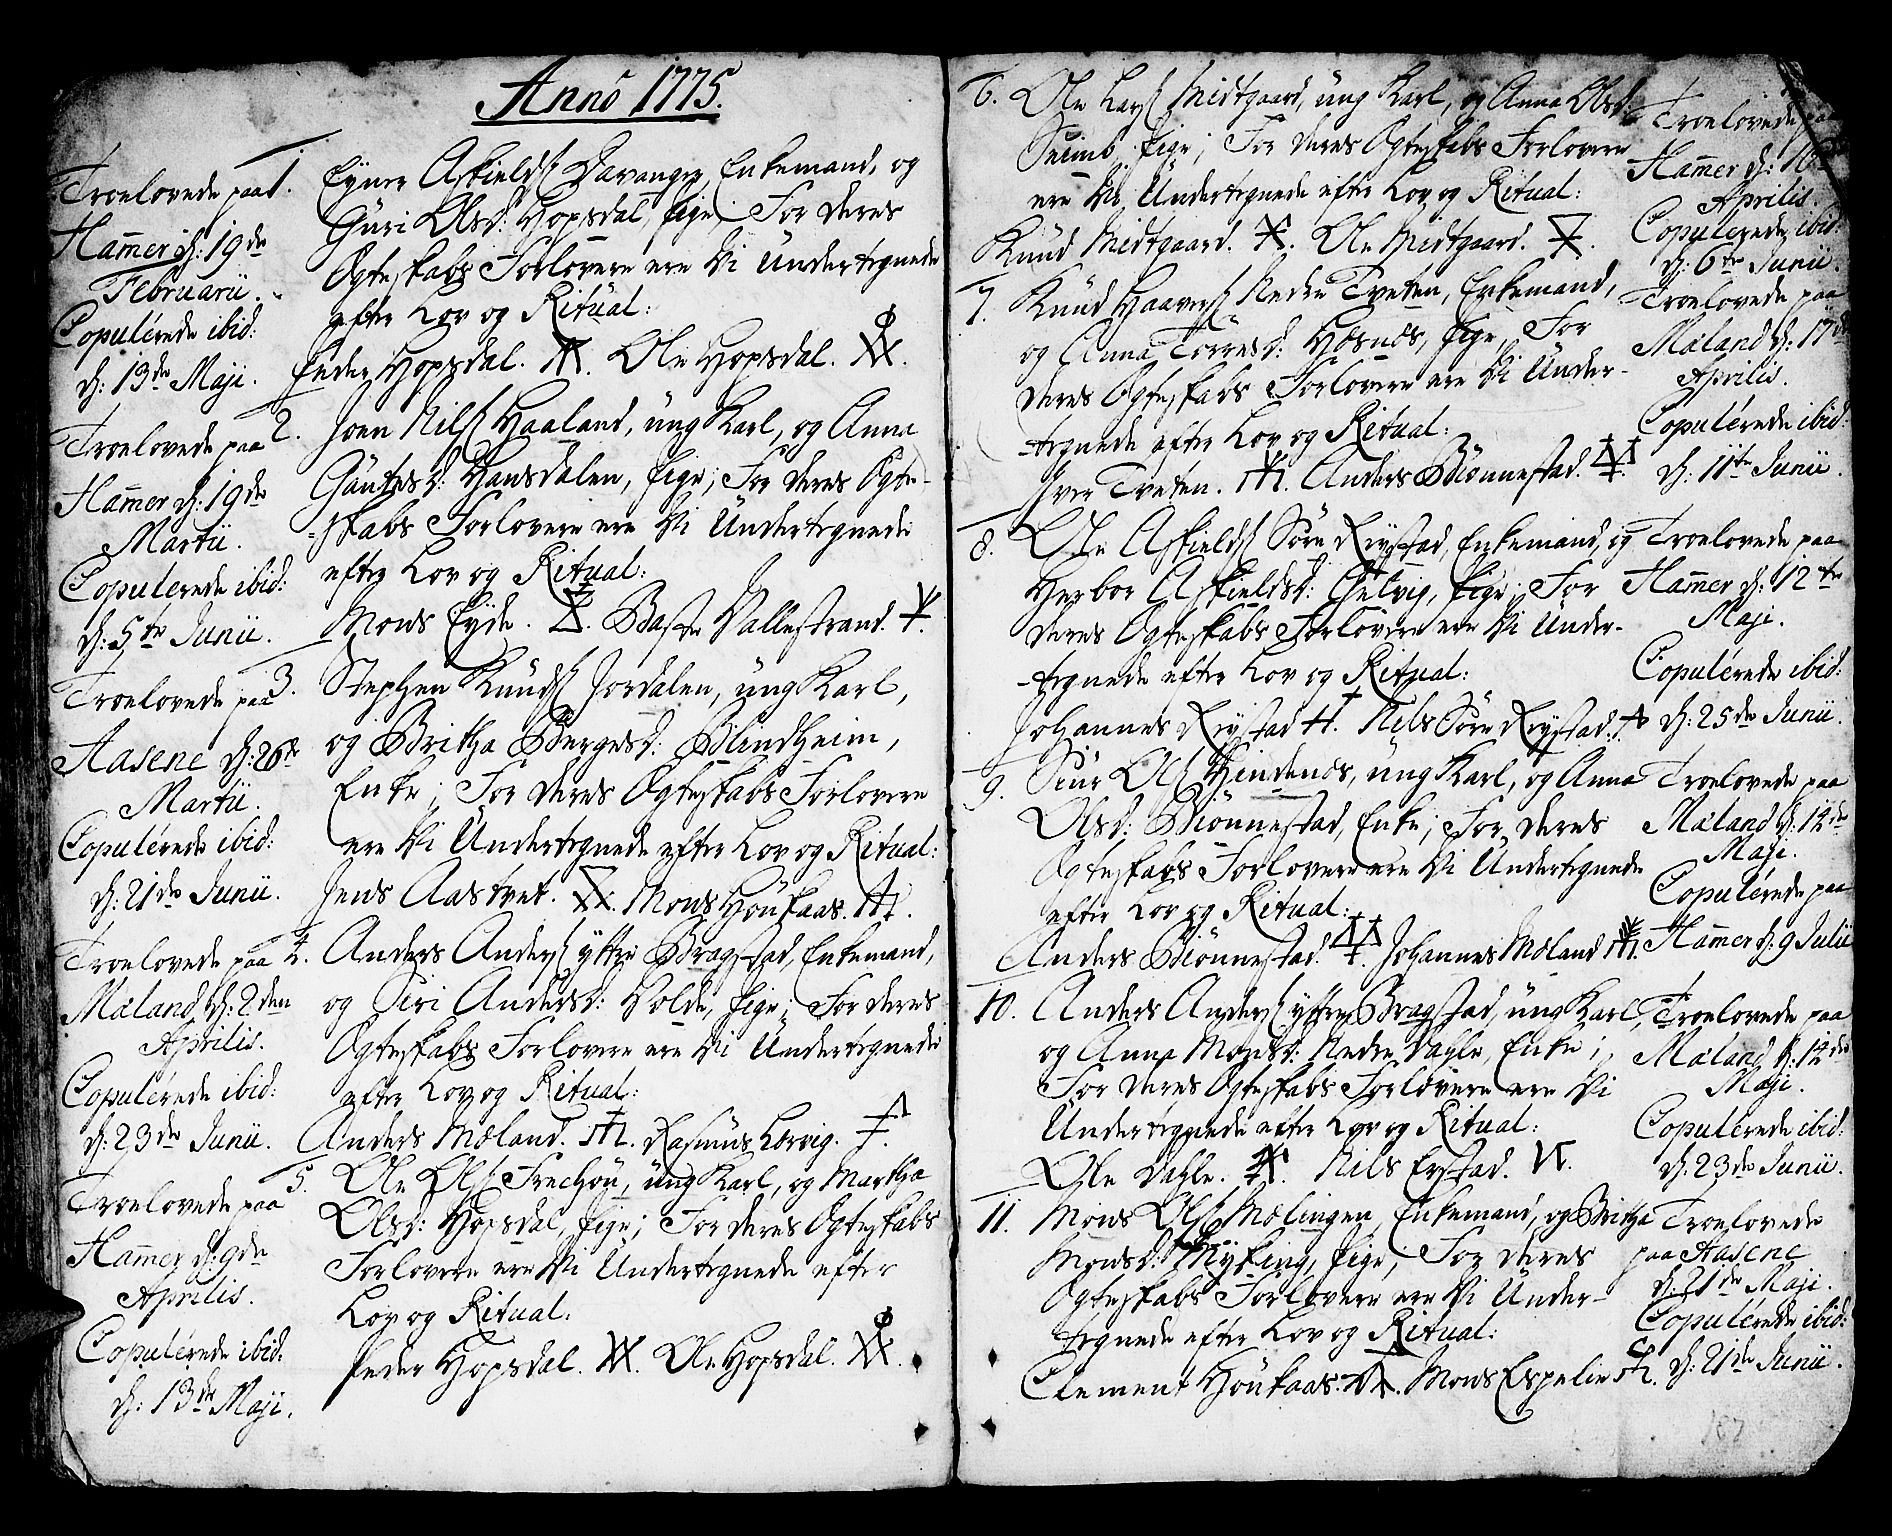 Anno 1775.
Troelovede paa
Hamer d: 19de
Februarii.
Copulérede ibid:
d: 13de Maji.
1. Eyner Askields Davanger, Enkemand, og
Guri Olsd: Hopsdal, Pige; For deres
Ægteskabs Forlovere ere Vi Undertegnede
efter Lov og Ritual:
Peder Hopsdal. Ole Hopsdal.
Troelovede paa
Hamer d: 19de
Martii.
Copulerede ibid:
d: 5te Junii.
2. Joen Nils Haaland, ung Karl, og Anna
Hansdalen, Pige; For deres Ægte-
-skabs Forlovere ere Vi Undertegnede
efter Lov og Ritual:
Mons Eyde. Baste Vallestrand.
Troelovede paa
Aasene d: 26de
Martii.
Copulérede ibid:
d: 21de Junii.
3. Stephen Knuds Jordalen, ung Karl,
og Britha Bergesd: Blindheim,
Enke; For deres Ægteskabs Forlovere
ere Vi Undertegnede efter Lov og Ritual:
Jens Aastvet. Mons Höukaas.
Troelovede paa
Mæland d: 2den
Aprilis.
Copulérede ibid:
d: 23de Junii.
4. Anders Anders yttre Bragstad, Enkemand,
og Siri Andersd: Holde, Pige; For deres
Ægteskabs Forlovere ere Vi Undertegnede
efter Lov og Ritual:
Anders Mæland. Rasmus Lervig.
Troelovede paa
Hamer d: 9de
Aprilis.
Copulérede ibid:
d: 13de Maji.
5. Ole Ols Trechöu, ung Karl, og Martha
Olsd: Hopsdal, Pige; For deres Ægteskabs
Forlovere ere Vi Undertegnede efter
Lov og Ritual:
Peder Hopsdal. Ole Hopsdal.
6. Ole Lars Midtgaard, ung Karl, og Anna Olsd:
Pige; For deres Ægteskabs Forlovere
ere Vi Undertegnede efter Lov og Ritual:
Knud Midtgaard. Ole Midtgaard.
Troelovede paa
Hamer d: 16
Aprilis.
Copulérede ibid:
d: 6te Junii.
7. Knud Haavers Nedre Tveten, Enkemand,
og Anna Torresd: Hosnös, Pige, For
deres Ægteskabs Forlovere ere Vi Under-
-tegnede efter Lov og Ritual:
Iver Tveten. Anders Biönnestad.
Troelovede paa
Mæland d: 17de
Aprilis.
Copulérede ibid:
d: 11te Junii.
8. Ole Askields Söre Rystad, Enkemand, og
Herbor Askieldsd: Gielvig, Pige; For
deres Ægteskabs Forlovere ere Vi Under-
-tegnede efter Lov og Ritual:
Johannes Rystad. Nils Söre Rystad.
Troelovede paa
Hamer d: 12te
Maji.
Copulérede ibid:
d: 25de Junii.
9. Siur Ols Hindenæs, ung Karl, og Anna
Olsd: Biönnestad, Enke; For deres
Ægteskabs Forlovere ere Vi Undertegnede
efter Lov og Ritual:
Anders Biönnestad. Johannes Mæland.
Troelovede paa
Mæland d: 14de
Maji.
Copulérede paa
Hamer d: 9 Julii
10. Anders Anders yttre Bragstad, ung Karl,
og Anna Monsd: Nedre Dahle, Enke;
For deres Ægteskabs Forlovere ere Vi
Undertegnede efter Lov og Ritual:
Ole Dahle. Nils Erstad.
Troelovede paa
Mæland d: 14de
Maji.
Copulérede ibid:
d: 23de Junii.
11. Mons Ols Mælingen, Enkemand, og Britha
Monsd: Myking, Pige, For deres
Ægteskabs Forlovere ere Vi Under-
tegnede efter Lov og Ritual:
Clement Höukaas. Mons Espelie
Troelovede
paa Aasene
d: 21de Maji.
Copulérede ibid:
d: 21de Junii.